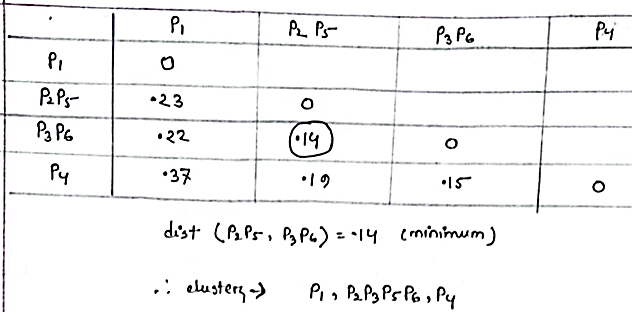 . P1 P2 P5 P3 P6 P4
P1 0
P2 P5 .23 0
P3 P6 .22 .14 0
P4 .37 .19 .15 0
dist (P2P5, P3P6) = .14 (minimum)
∴ clusters → P1, P2P3P5P6, P4